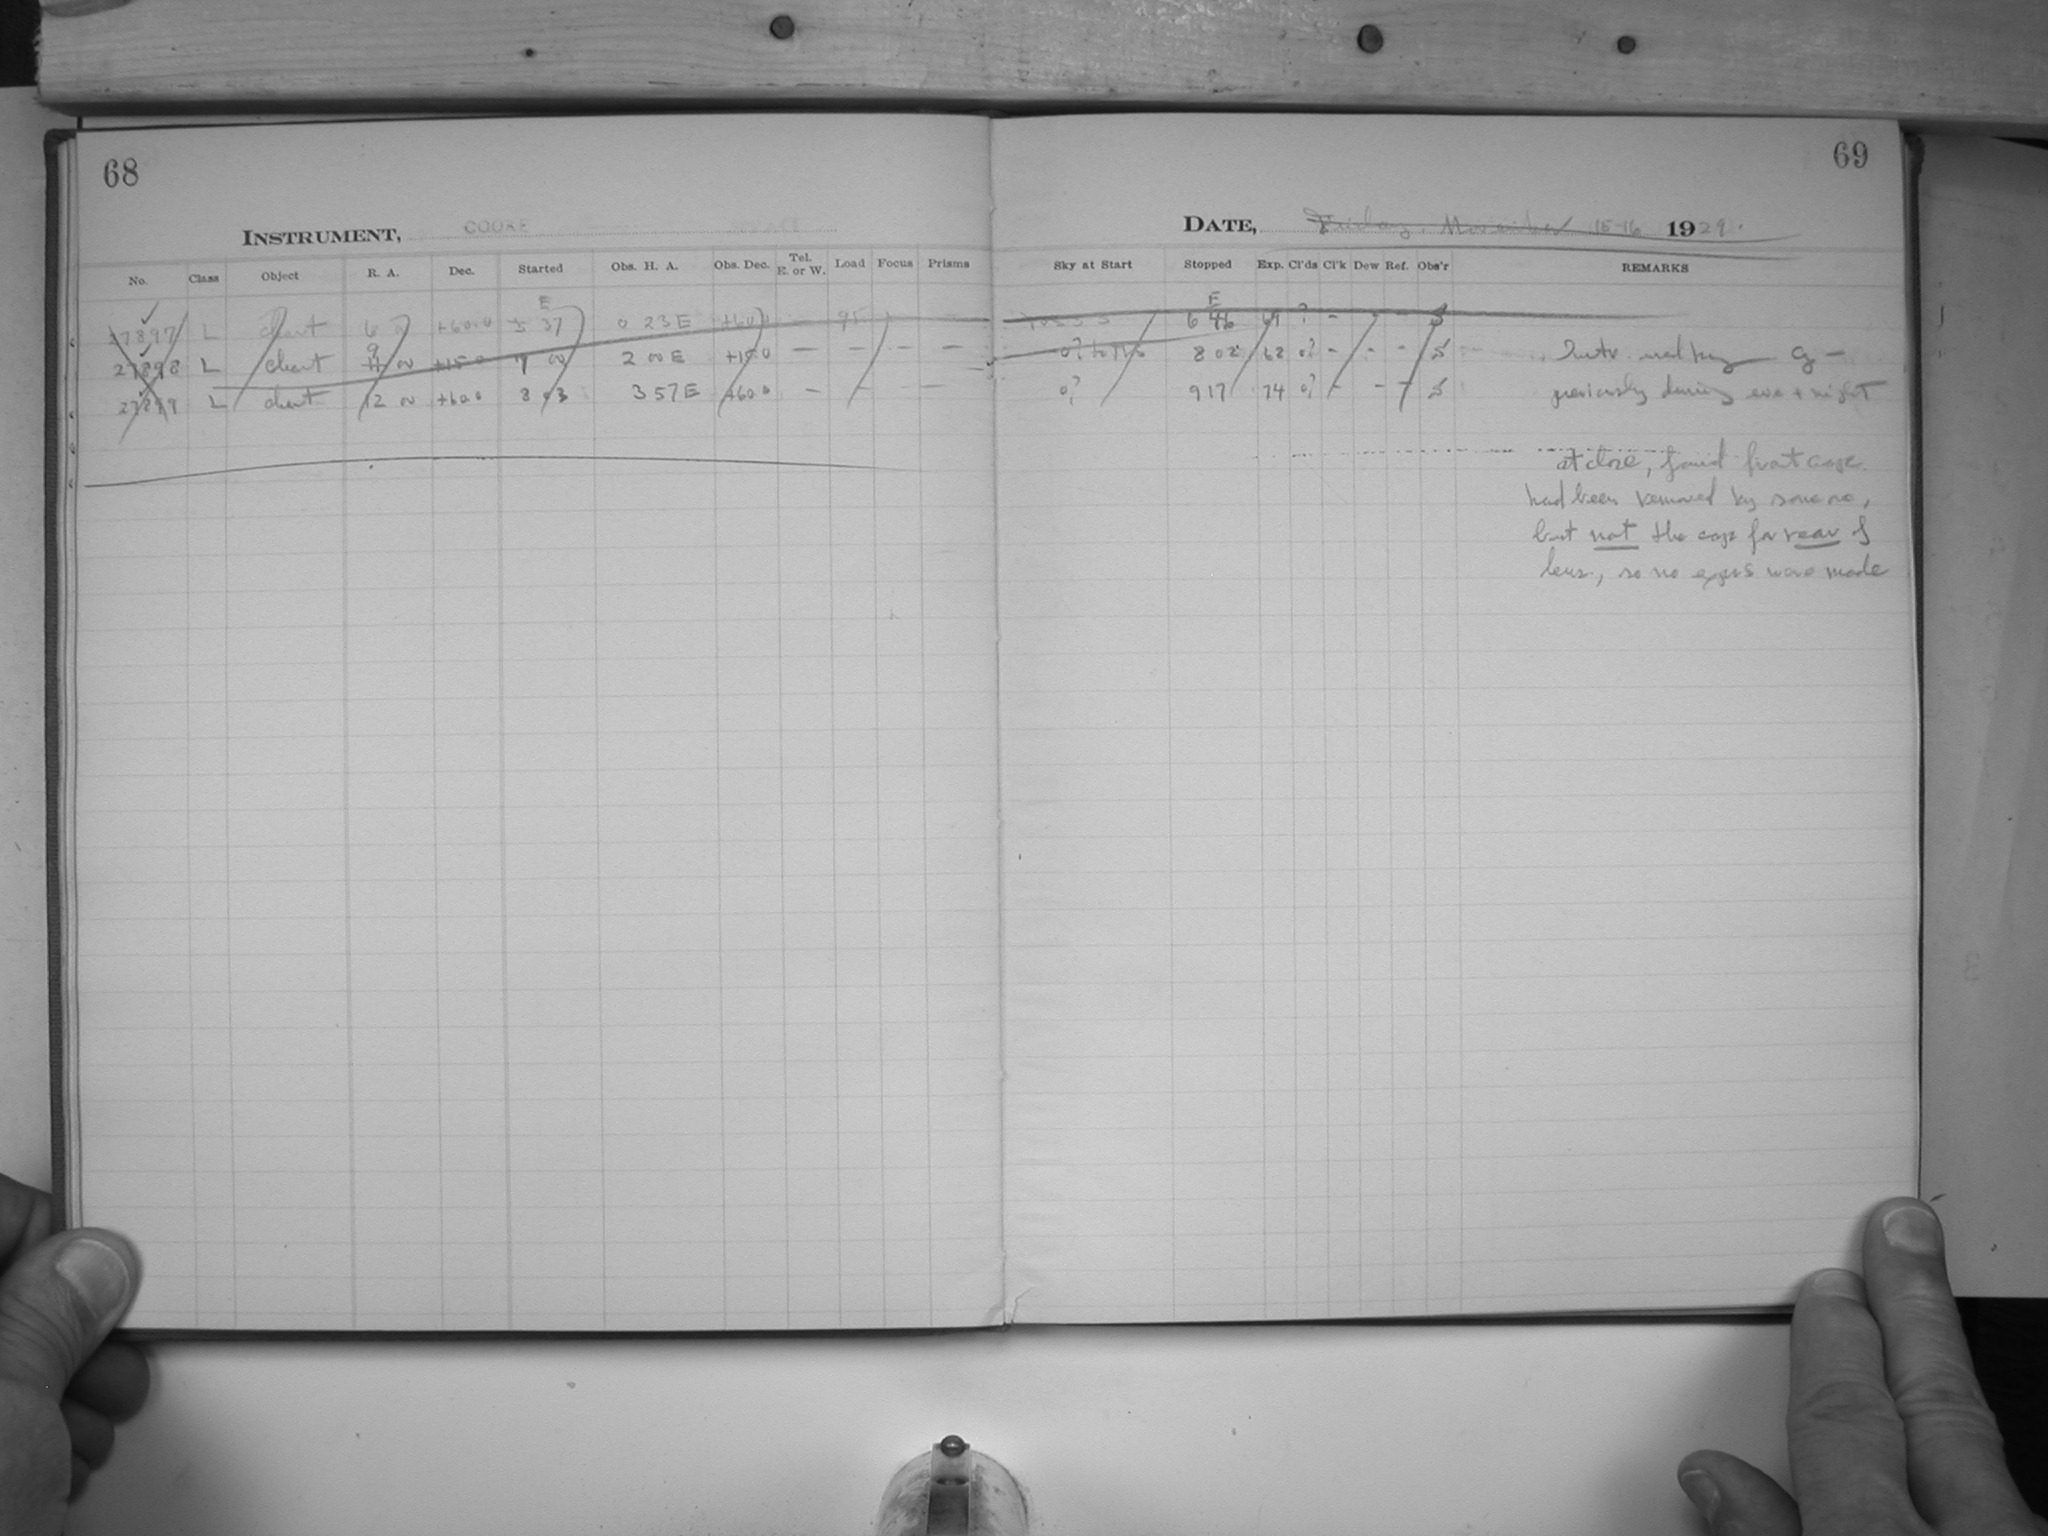 68
INSTRUMENT, COOKE
No. Class Object R. A. Dec. Started Obs. H. A. Obs. Dec. Tel. E. or W. Load Focus Prisms
E
27897 L chart 6 0 +60.0 5 37 0 23 E +60.0 95
9
27898 L chart 11 00 +15.0 7 00 2 00 E +15.0 — — — —
27899 L chart 12 00 +60.0 8 03 3 57 E +60.0 — — — —
69
DATE, Friday, November 15-16 1929.
Sky at Start Stopped Exp. Cl'ds Cl'k Dew Ref. Obs'r REMARKS
E
6 46 69 ? - - - S
0? 8 02 62 0? - - - S
0? 9 17 74 0? - - - S previously during eve + night
at close, found front cage
had been removed by someone,
but not the cage for rear of
lens, so no expos were made